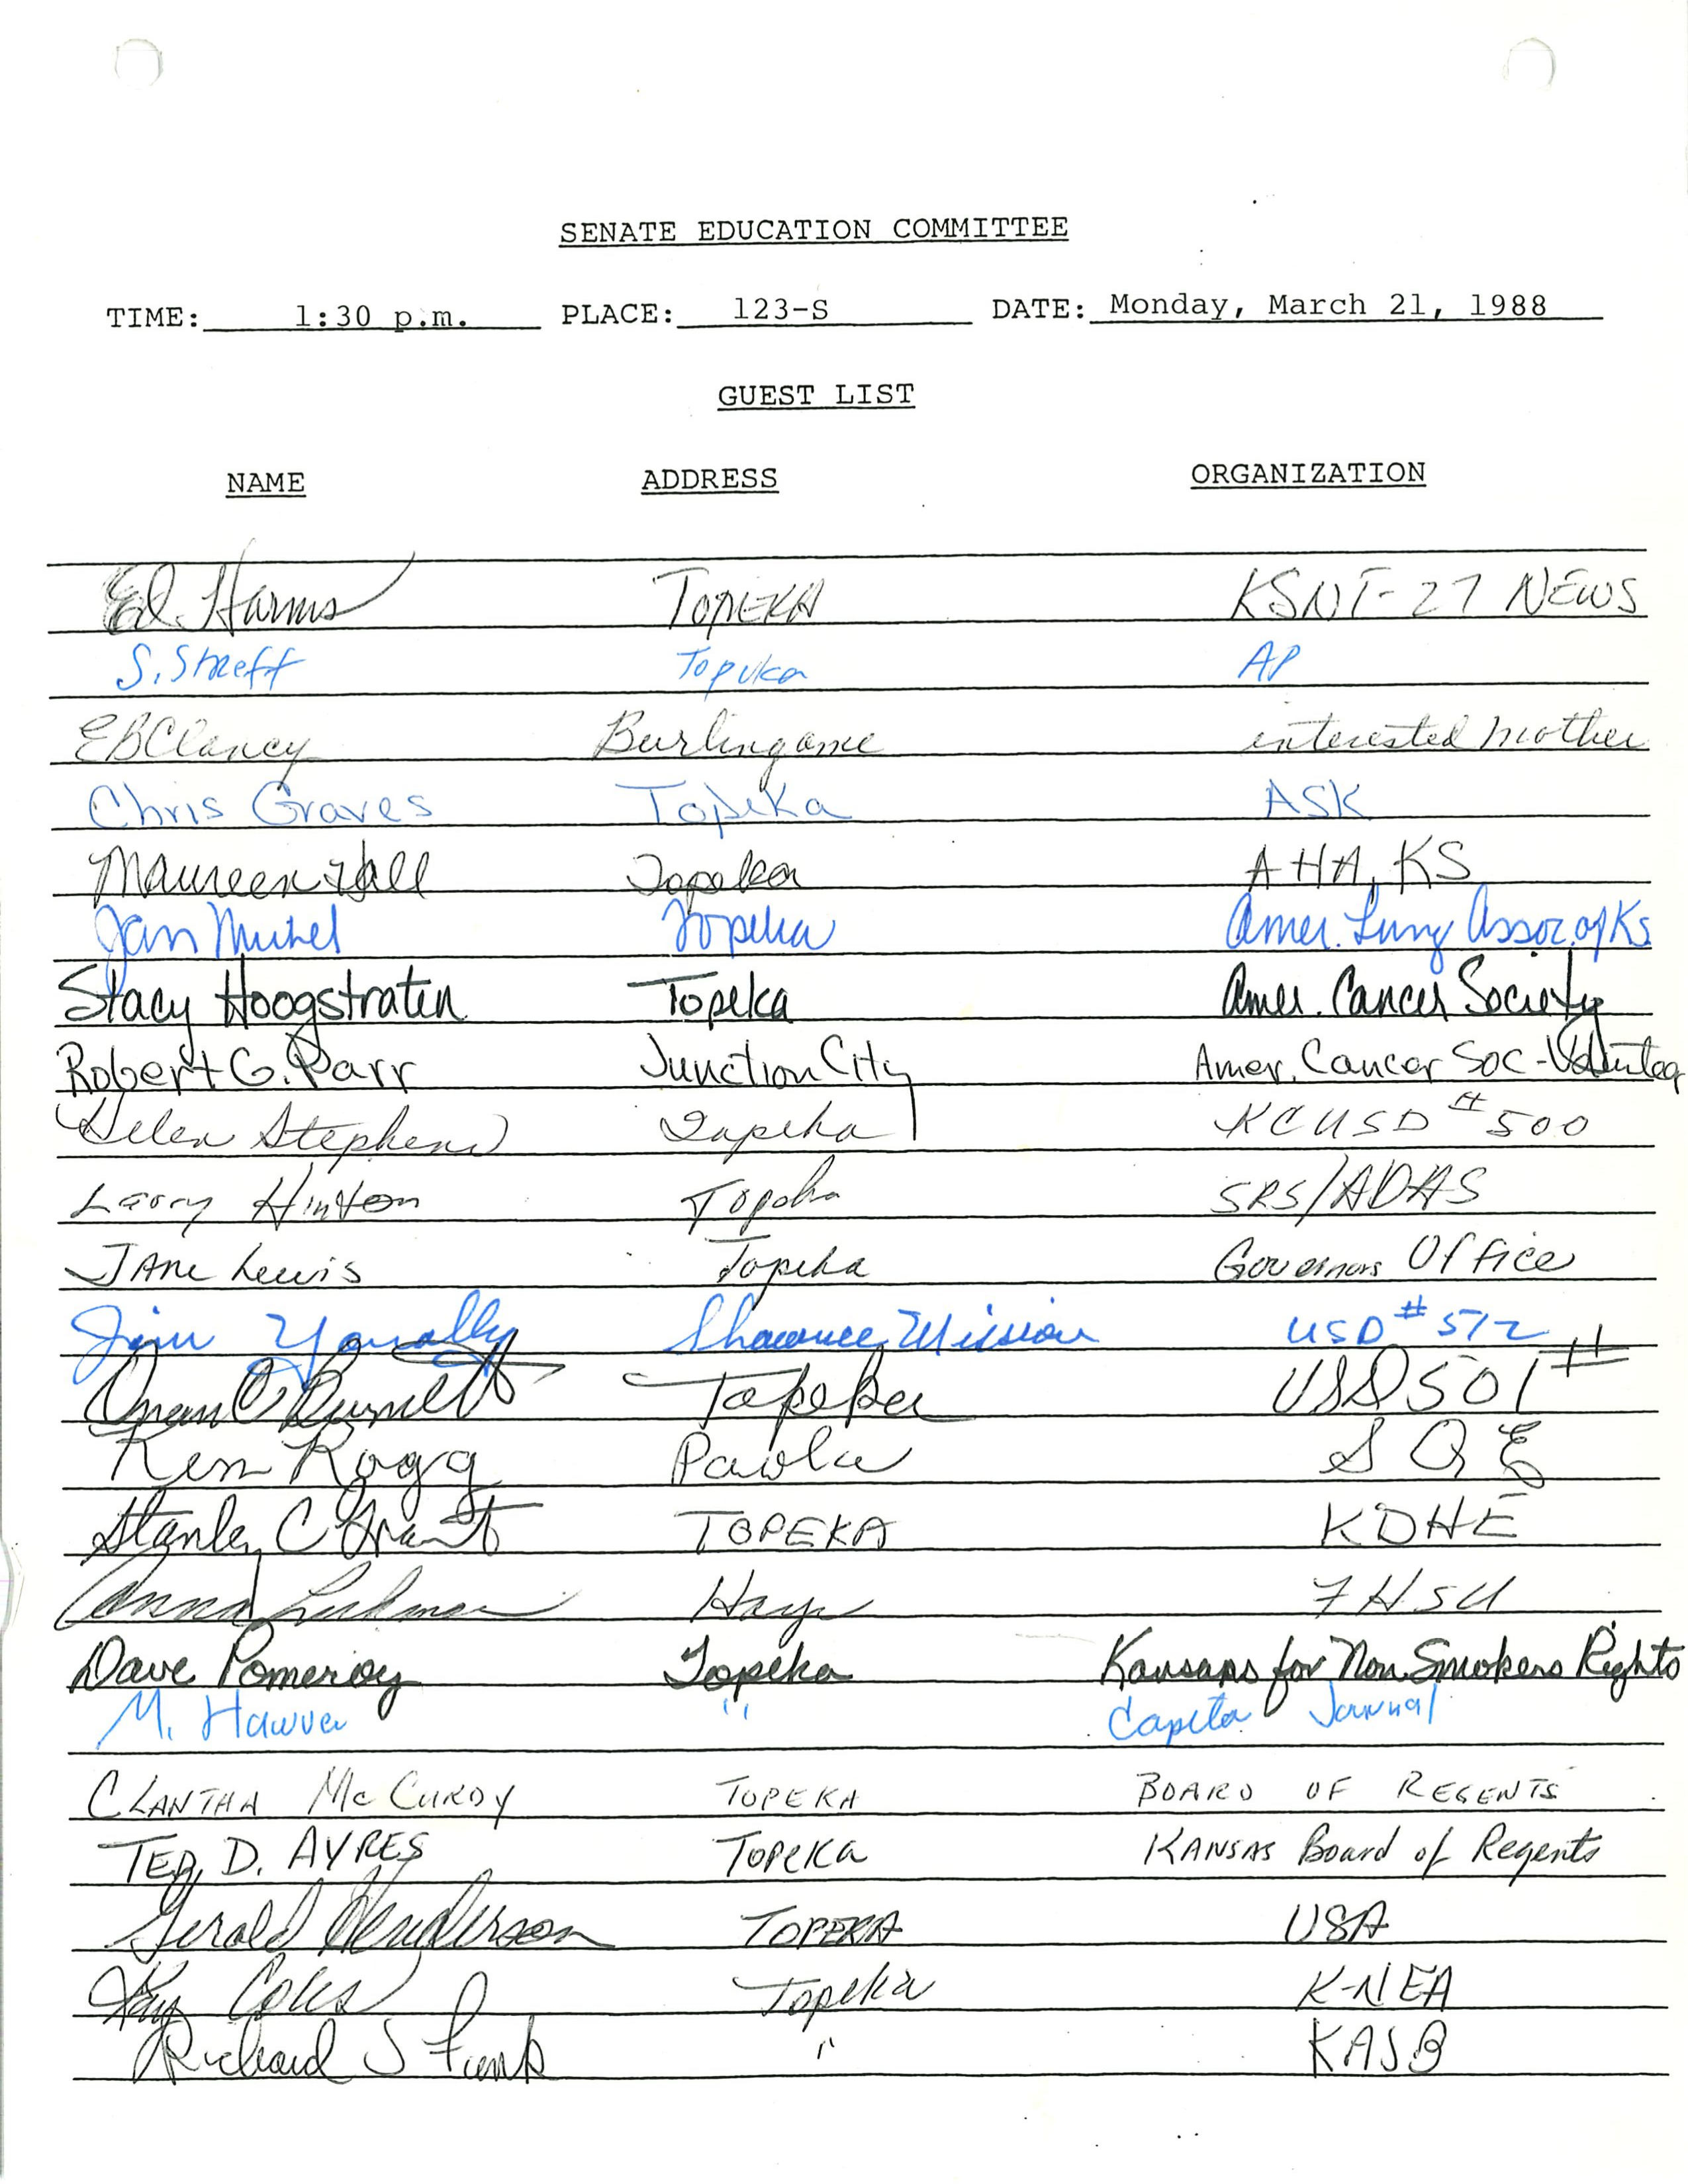 SENATE EDUCATION COMMITTEE
TIME: 1:30 p.m. PLACE: 123-S DATE: Monday, March 21, 1988
GUEST LIST
NAME ADDRESS ORGANIZATION
Ed Harms TOPEKA KSNT-27 NEWS
S. Streff Topeka AP
EBClancy Burlingame interested mother
Chris Graves Topeka ASK
Maureen Hall Topeka AHA, KS
Jan Topeka Amer. Lung Assoc. of Ks
Stacy Hoogstraten Topeka Amer. Cancer Society
Robert G. Parr Junction City Amer. Cancer Soc - Volunteer
Helen Stephens Topeka KC USD #500
Larry Hinton Topeka SRS/ADAS
Jane Lewis Topeka Governors Office
Jim Yonally Shawnee Mission USD #512
Topeka USD 501 #
Ken Rogg Paola SQE
Stanley C Grant TOPEKA KDHE
Hays FHSU
Dave Pomeroy Topeka Kansans for Non Smokers Rights
M. Hawver " Capital Journal
CLANTHA McCURDY TOPEKA BOARD OF REGENTS
TED D. AYRES TOPEKA KANSAS Board of Regents
Gerald Henderson TOPEKA USA
Kay Coles Topeka K-NEA
Richard S Funk " KASB